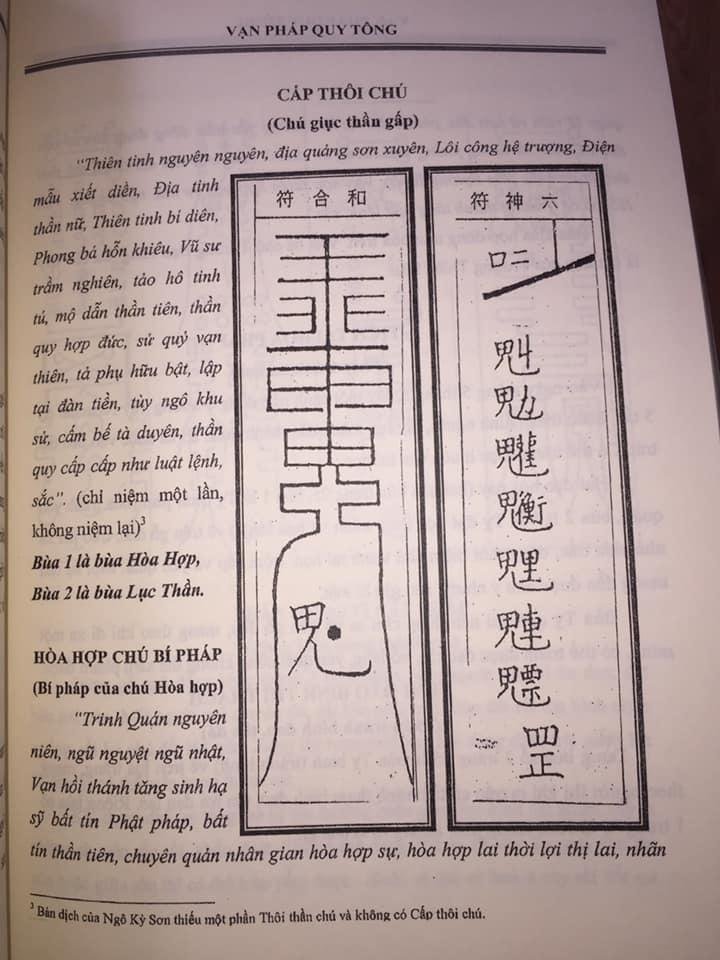 VẠN PHÁP QUY TÔNG
CẤP THÔI CHÚ
(Chú giục thần gấp)
“Thiên tinh nguyên nguyên, địa quảng sơn xuyên, Lôi công hệ trượng, Điện
mẫu xiết diễn, Địa tinh
thần nữ, Thiên tinh bí diên,
Phong bá hỗn khiêu, Vũ sư
trầm nghiên, tảo hô tinh
tú, mộ dẫn thần tiên, thần
quy hợp đức, sử quỷ vạn
thiên, tả phụ hữu bật, lập
tại đàn tiền, tùy ngô khu
sử, cấm bế tà duyên, thần
quy cấp cấp như luật lệnh,
sắc”. (chỉ niệm một lần,
không niệm lại)3
Bùa 1 là bùa Hòa Hợp,
Bùa 2 là bùa Lục Thần.
符合和
符神六
HÒA HỢP CHÚ BÍ PHÁP
(Bí pháp của chú Hòa hợp)
“Trinh Quán nguyên
niên, ngũ nguyệt ngũ nhật,
Vạn hồi thánh tăng sinh hạ
sỹ bất tín Phật pháp, bất
tín thần tiên, chuyên quản nhân gian hòa hợp sự, hòa hợp lai thời lợi thị lai, nhãn
3 Bản dịch của Ngô Kỳ Sơn thiếu một phần Thôi thần chú và không có Cấp thôi chú.